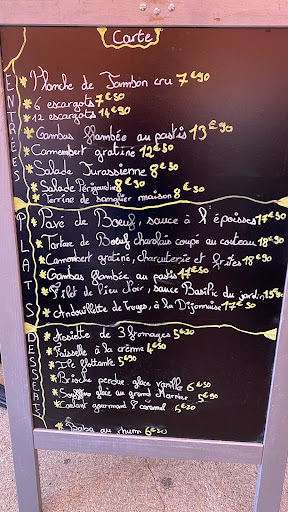 Carte
ENTRÉES
Planche de Jambon cru 7€90
6 escargots 7€50
12 escargots 14€90
Gambas flambée au pastis 13€90
Camembert gratiné 12€50
Salade Jurassienne 8€50
Salade Périgourdine 8€50
Terrine de sanglier maison 8€50
PLATS
Pavé de Boeuf, sauce à l'époisses 17€90
Tartare de Boeuf charolais coupé au couteau 18€90
Camembert gratiné, charcuterie et frites 18€90
Gambas flambée au pastis 17€50
Filet de Lieu Noir, sauce Basilic du jardin 15€80
Andouillette de Troyes, à la Dijonnaise 17€50
DESSERT
Assiette de 3 fromages 5€20
Faisselle à la crème 4€50
Ile flottante 5€50
Brioche perdue glace vanille 6€50
Soufflé glacé au grand Marnier 5€90
Coulant gourmand & caramel 5€20
Baba au rhum 6€20